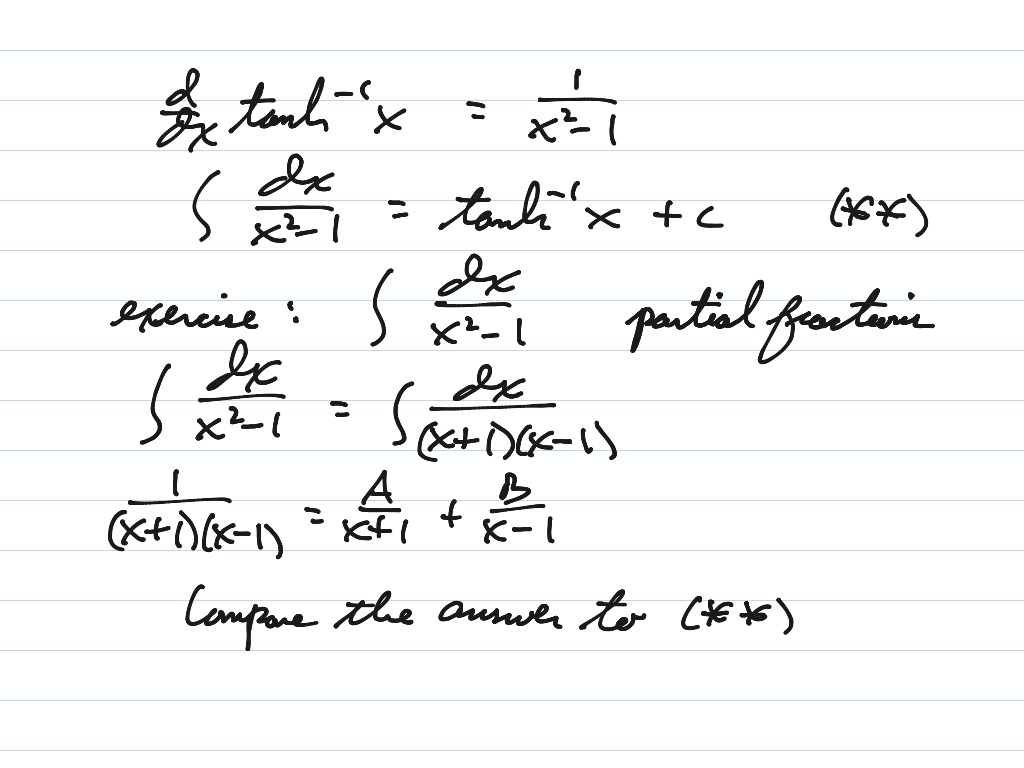 d/dx tanh⁻¹ x = 1/(x² - 1)
∫ dx/(x² - 1) = tanh⁻¹ x + c (**)
exercise : ∫ dx/(x² - 1) partial fractions
∫ dx/(x² - 1) = ∫ dx/((x+1)(x-1))
1/((x+1)(x-1)) = A/(x+1) + B/(x-1)
Compare the answer to (**)